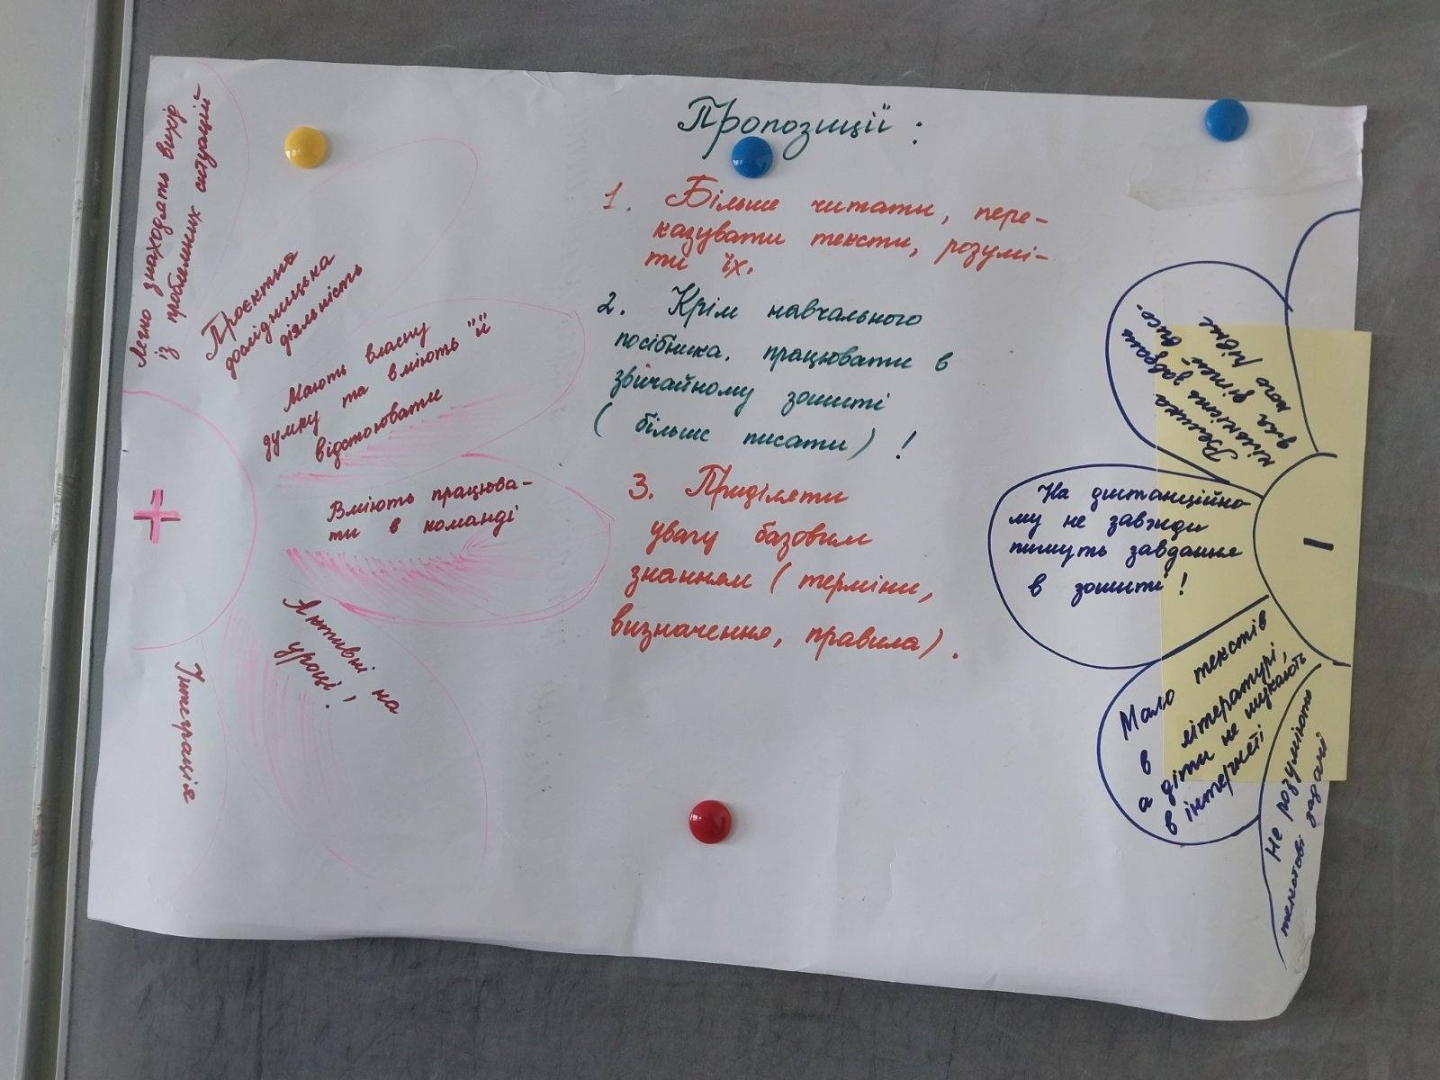 Пропозиції :
1. Більше читати, пере-
казувати тексти, розумі-
ти їх.
2. Крім навчального
посібника. працювати в
звичайному зошиті
( більше писати) !
3. Приділяти
увагу базовим
знанням ( терміни,
визначення, правила) .
+
Легко знаходять вихід
із проблемних ситуацій
Проєктна
дослідницька
діяльність
Мають власну
думку та вміють її
відстоювати
Вміють працюва-
ти в команді
Активні на
уроці !
Інтеграція
-
Велика
кількість завдань
для дітей висо-
кого рівня
На дистанційно
му не завжди
пишуть завдання
в зошиті !
Мало текстів
в літературі,
а діти не шукають
в інтернеті
Не розуміють
текстові задачі